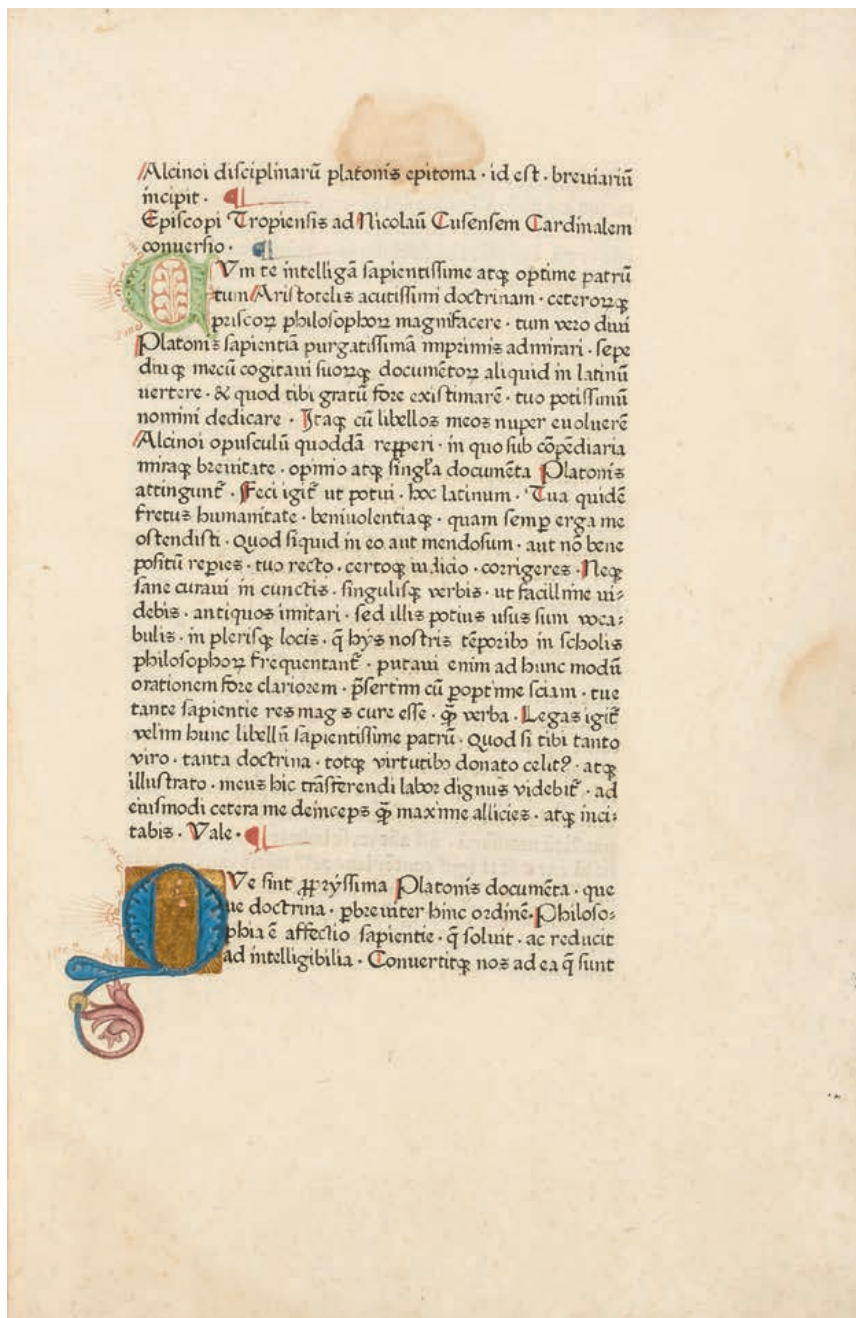 Alcinoi disciplinarū platonis epitoma · id est · breviariū
incipit ·
Episcopi Tropiensis ad Nicolaū Cusensem Cardinalem
conversio ·
CVm te intelligā sapientissime atq̨ optime patrū
tum Aristotelis acutissimi doctrinam · ceteroꝝq̨
priscoꝝ philosophoꝝ magnifacere · tum vero diui
Platonis sapientiā purgatissimā imprimis admirari · sepe
diuq̨ mecū cogitaui suoꝝq̨ documētoꝝ aliquid in latinū
uertere · & quod tibi gratū fore existimarē · tuo potissimū
nomini dedicare · Itaq̨ cū libellos meos nuper euoluerē
Alcinoi opusculū quoddā reꝑperi · in quo sub cōpēdiaria
miraq̨ breuitate · opinio atq̨ singl̃a documēta Platonis
attingunt᷑ · Feci igit᷑ ut potui · hoc latinum · Tua quidē
fretus humanitate · beniuolentiaq̨ · quam semꝑ erga me
ostendisti · Quod siquid in eo aut mendosum · aut nō bene
positū reꝑies · tuo recto · certoq̨ iudicio · corrigeres · Neq̨
sane curaui in cunctis · singulisq̨ verbis · ut facillime ui⸗
debis · antiquos imitari · sed illis potius usus sum voca⸗
bulis · in plerisq̨ locis · q̄ hys nostris tēporibꝰ in scholis
philosophoꝝ frequentant᷑ · putaui enim ad hunc modū
orationem fore clariorem · p̄sertim cū ꝑoptime sciam · tue
tante sapientie res mag s cure esse · q̨̄ verba · Legas igit᷑
velim hunc libellū sapientissime patrū · Quod si tibi tanto
viro · tanta doctrina · totq̨ virtutibꝰ donato celit? · atq̨
illustrato · meus hic trāsferendi labor dignus videbit᷑ · ad
eiusmodi cetera me deinceps q̨̄ maxime allicies · atq̨ inci⸗
tabis · Vale ·
QVe sint ꝓpryssima Platonis documēta · que
ue doctrina · ꝑbreuiter hinc ordinē · Philoso⸗
phia ē affectio sapientie · q̄ soluit · ac reducit
ad intelligibilia · Convertitq̨ nos ad ea q̄ sunt